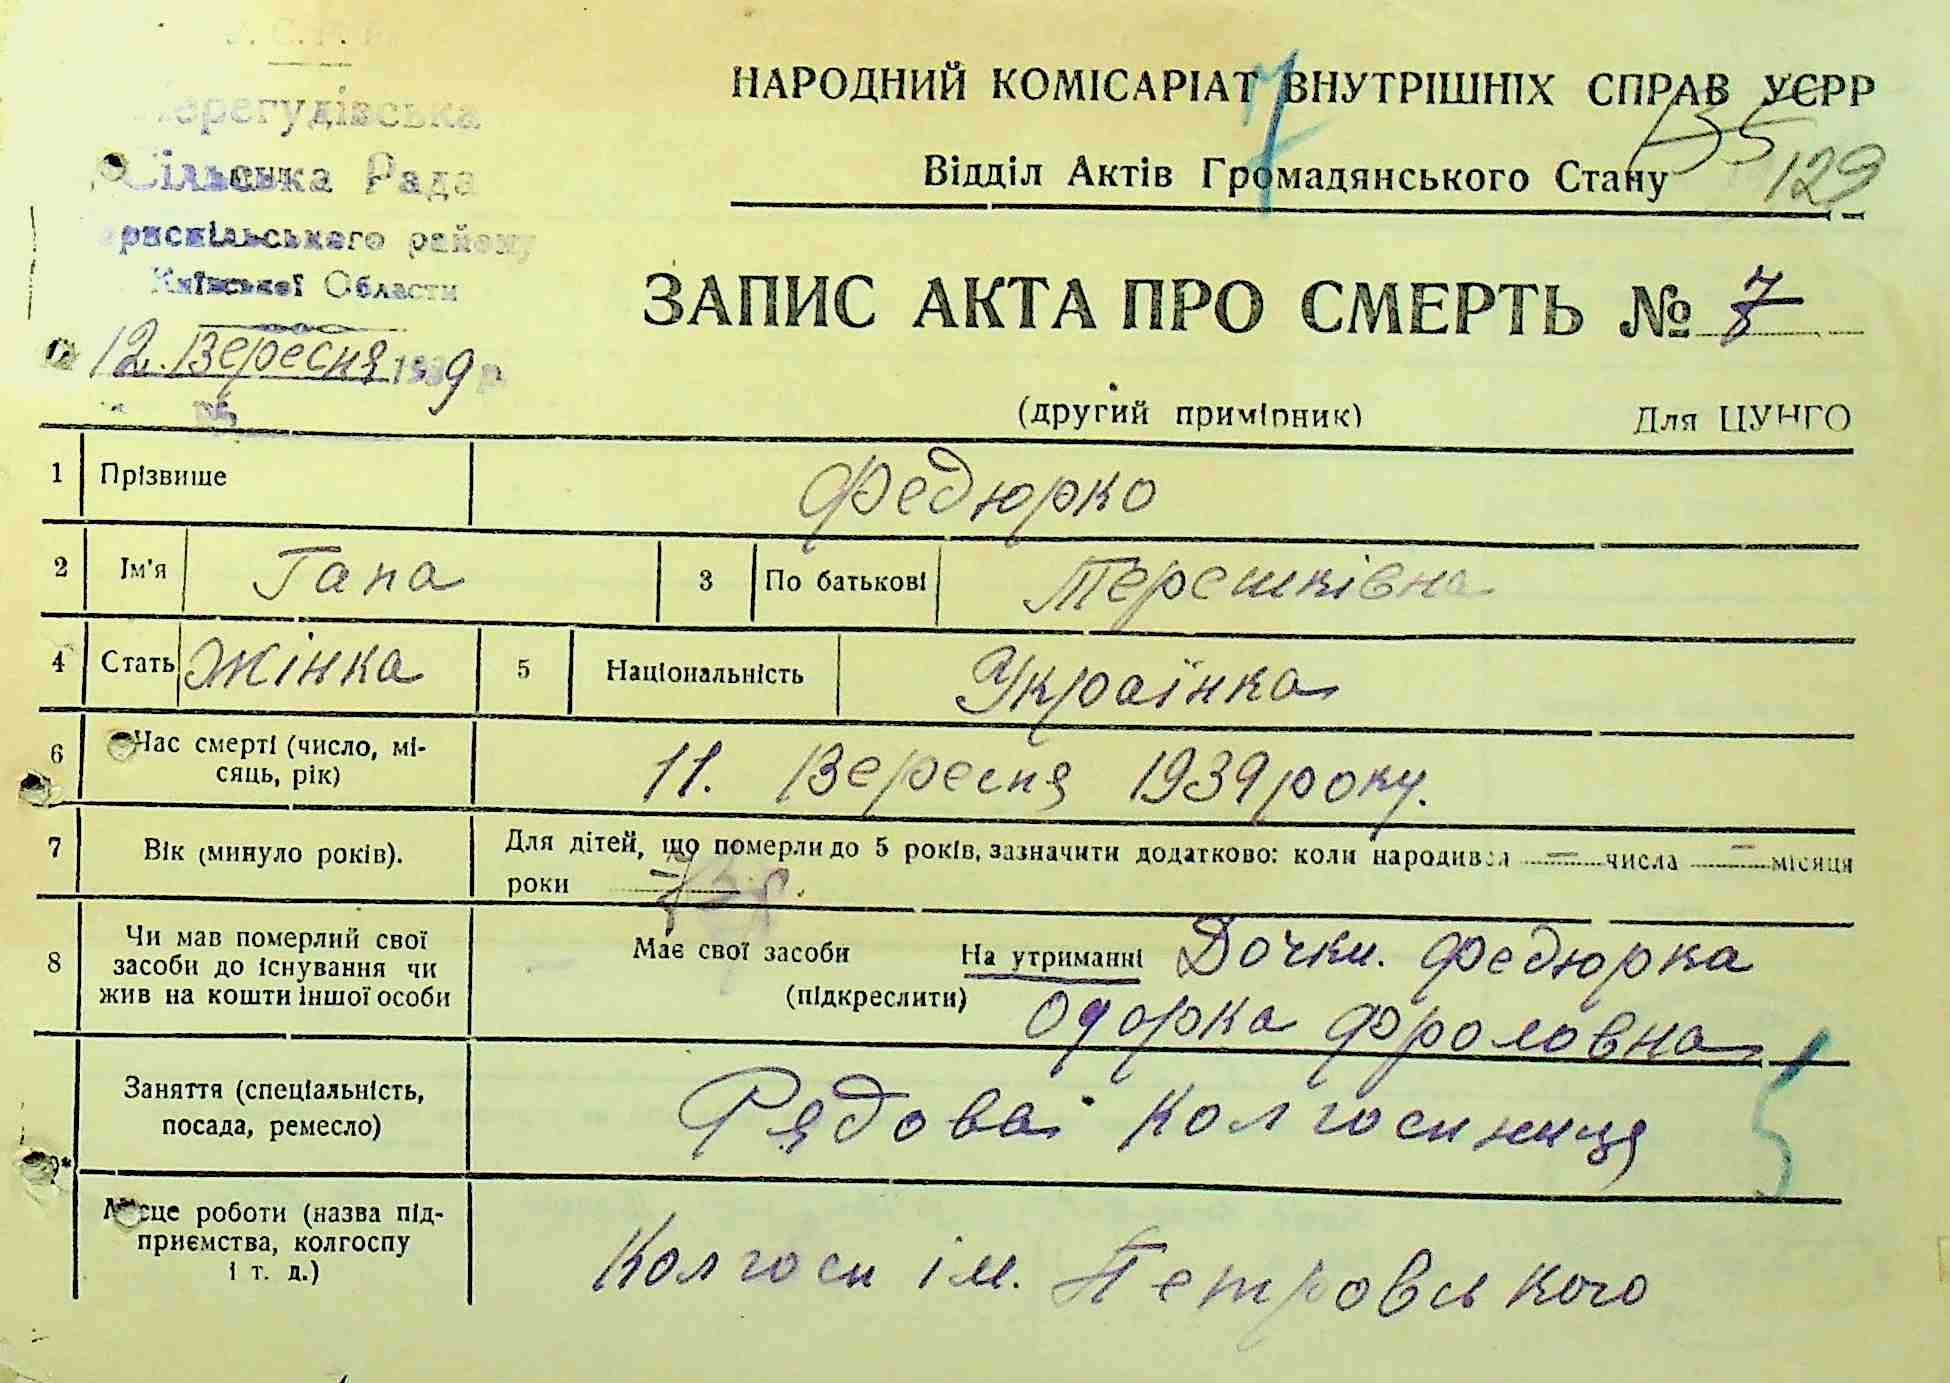 У. С. Р. Р.
Перегудівська
Сільська Рада
Бориспільського району
Київської Області
12. Вересня 1939 р.
НАРОДНИЙ КОМІСАРІАТ ВНУТРІШНІХ СПРАВ УСРР
7
135
Відділ Актів Громадянського Стану
129
ЗАПИС АКТА ПРО СМЕРТЬ № 7
(другий примірник) Для ЦУНГО
1 Прізвище Федюрко
2 Ім'я Гапа 3 По батькові Терешківна
4 Стать Жінка 5 Національність Українка
6 Час смерті (число, мі-
сяць, рік) 11. Вересня 1939 року.
7 Вік (минуло років). Для дітей, що померли до 5 років, зазначити додатково: коли народився — числа — місяця
роки —
8 Чи мав померлий свої
засоби до існування чи
жив на кошти іншої особи
Має свої засоби На утриманні Дочки. Федюрка
(підкреслити) Одарка Фроловна
Заняття (спеціальність,
посада, ремесло) Рядова колгоспниця
9*
Місце роботи (назва під-
приємства, колгоспу
і т. д.) Колгосп ім. Петровського